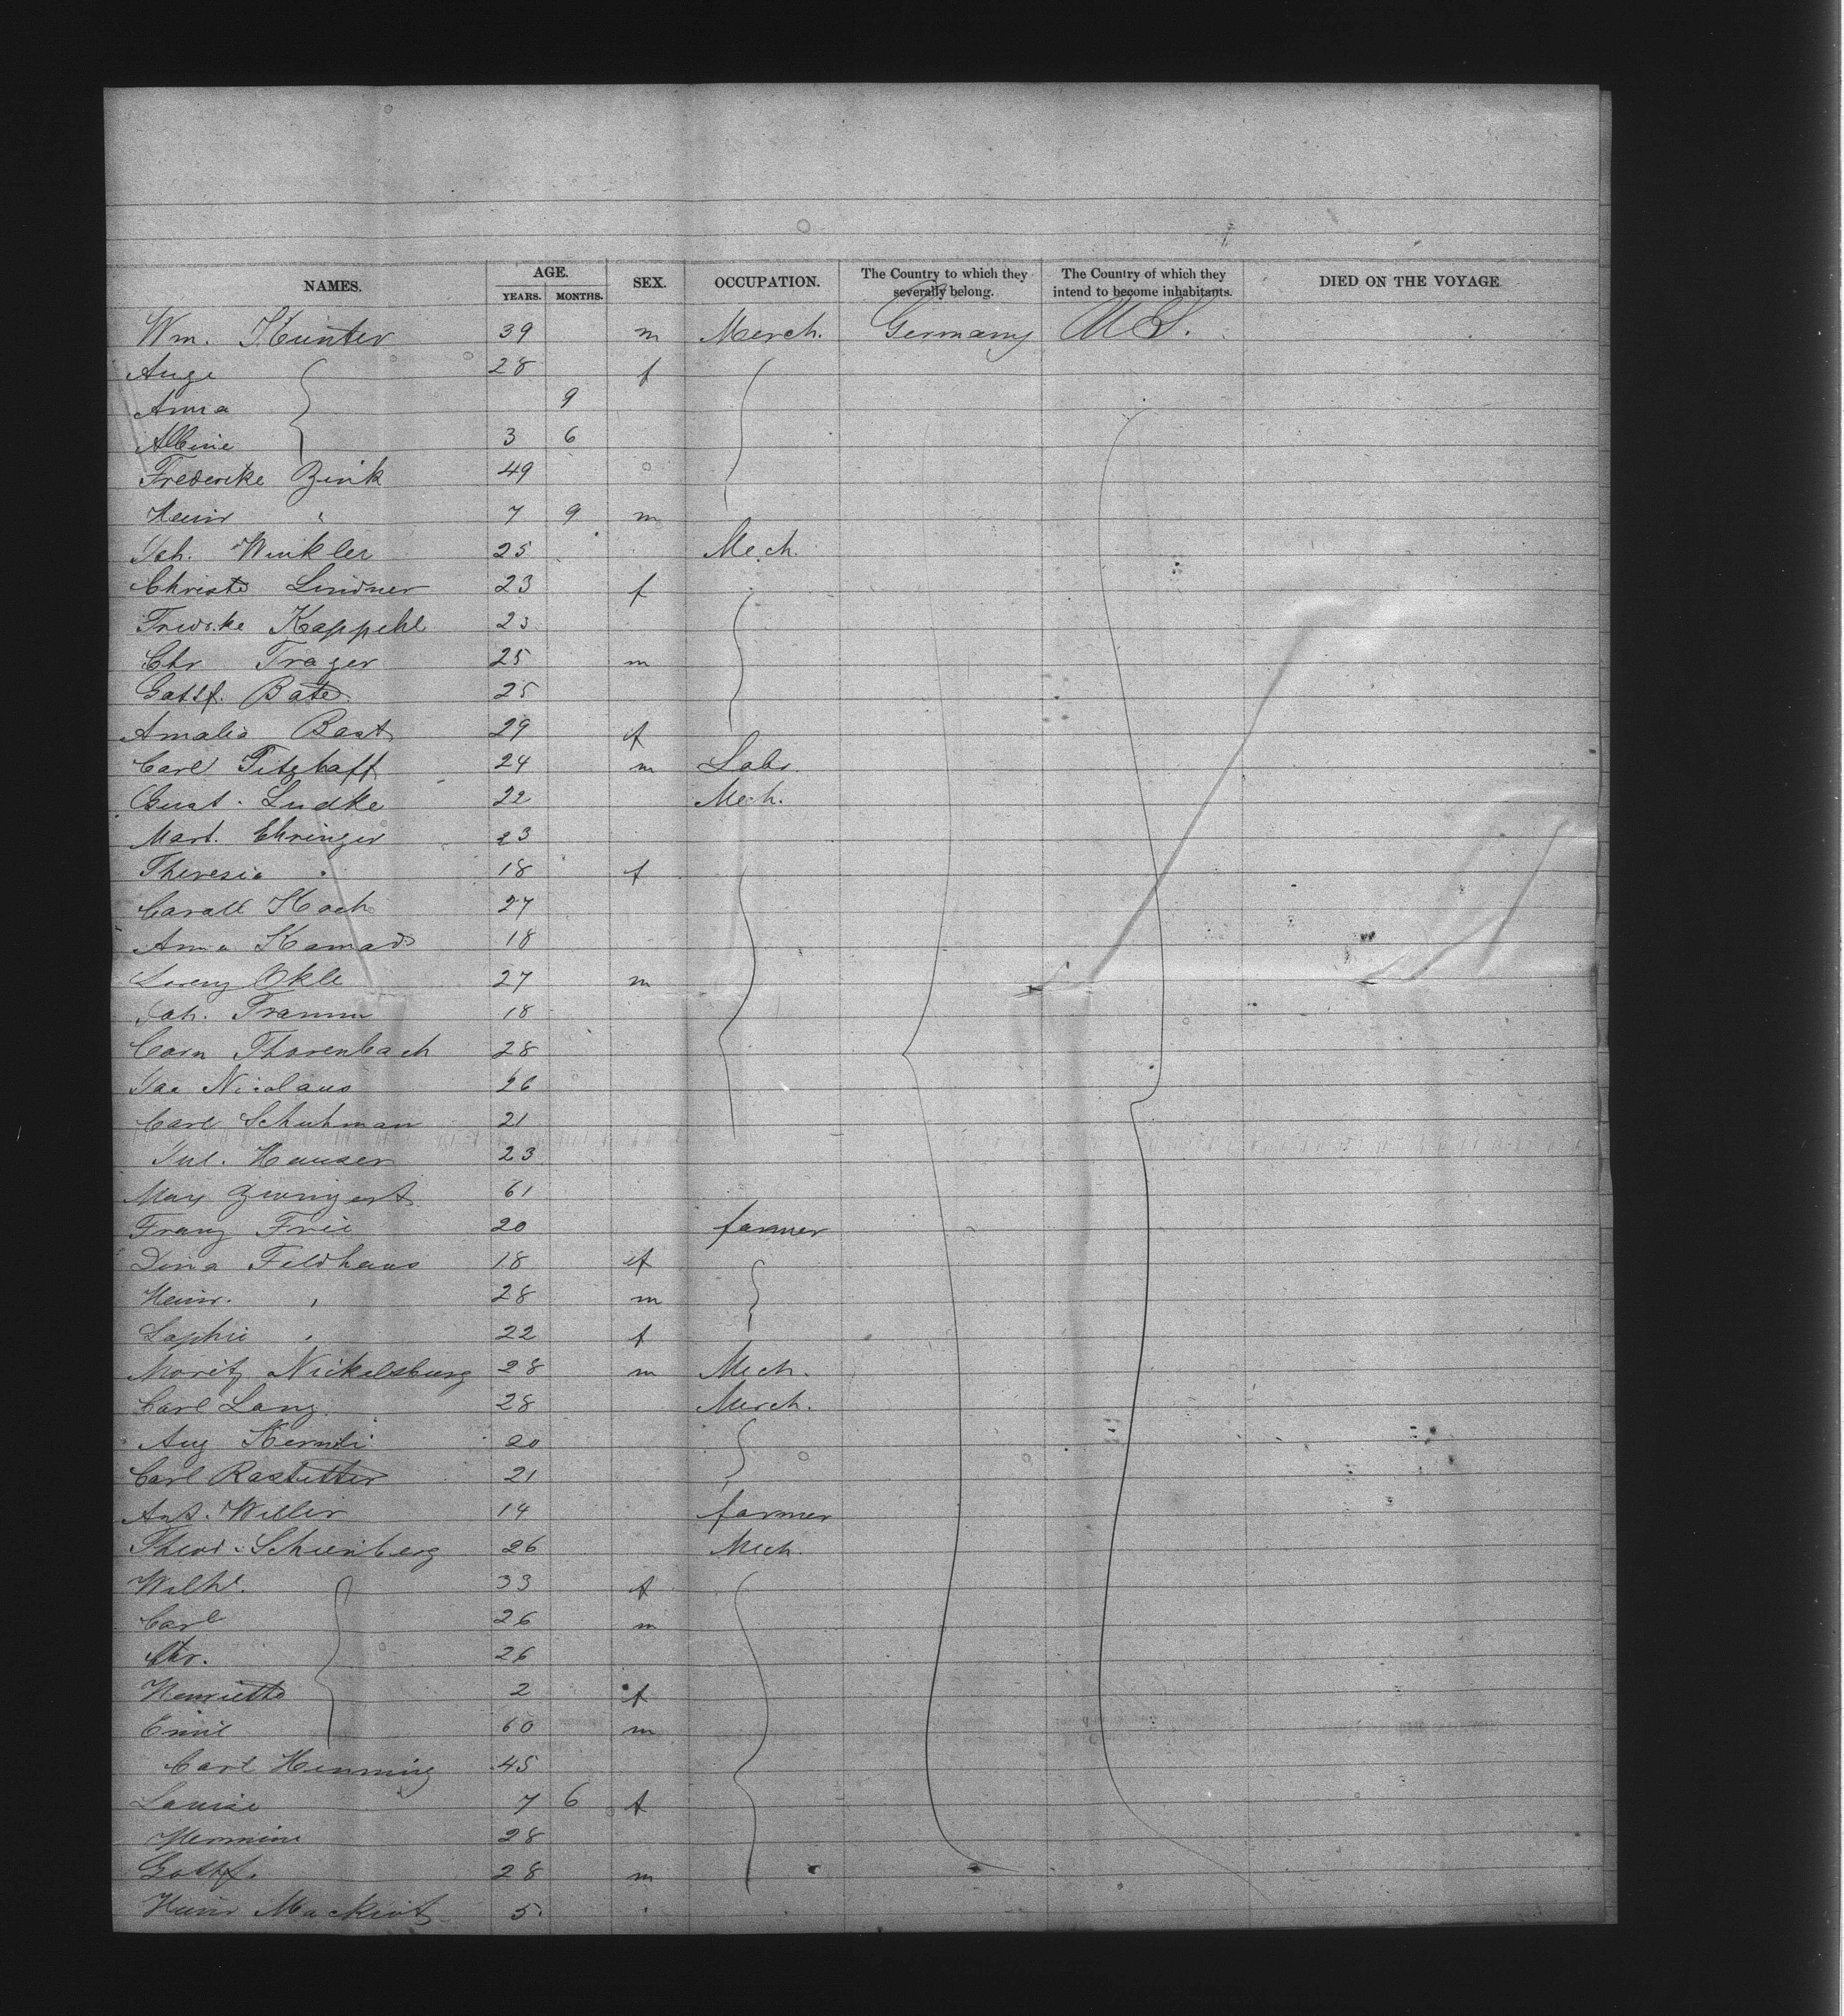 NAMES. AGE. YEARS. MONTHS. SEX. OCCUPATION. The Country to which they severally belong. The Country of which they intend to become inhabitants. DIED ON THE VOYAGE
Wm. Hunter 39 m Merch. Germany U.S.
Auge 28 f
Anna 9
Albine 3 6
Frederike Zink 49
Heinr " 7 9 m
Joh. Winkler 25 Mech.
Christe Lindner 23 f
Fredrke Kappehl 23
Chr Trager 25 m
Gottf. Bate 25
Amalia Bast 29 f
Carl Pitzhaff 24 m Labr.
Gust. Ludke 22 Mech.
Mart. Ehringer 23
Theresia " 18 f
Koch 27
Anna 18
Lorenz Okle 27 m
Joh. Tramm 18
Thorenbach 28
Jac Nicolaus 26
Carl Schuhman 21
Jul. Hauser 23
Max 61
Franz Frie 20 farmer
Dina Feldhaus 18 f
Heinr. " 28 m
Sophie " 22 f
Moritz Nickelsburg 28 m Mech.
Carl Lang 28 Merch.
Aug 20
Carl Rastetter 21
Ant. Willer 14 farmer
Theod. Schienberg 26 Mech
Wilhe. 33 f
Carl 26 m
Chr. 26
Henriette 2 f
Emil 60 m
Carl Henning 45
Louise 7 6 f
Hermine 28
Gottf. 28 m
Heinr Mackrot 5